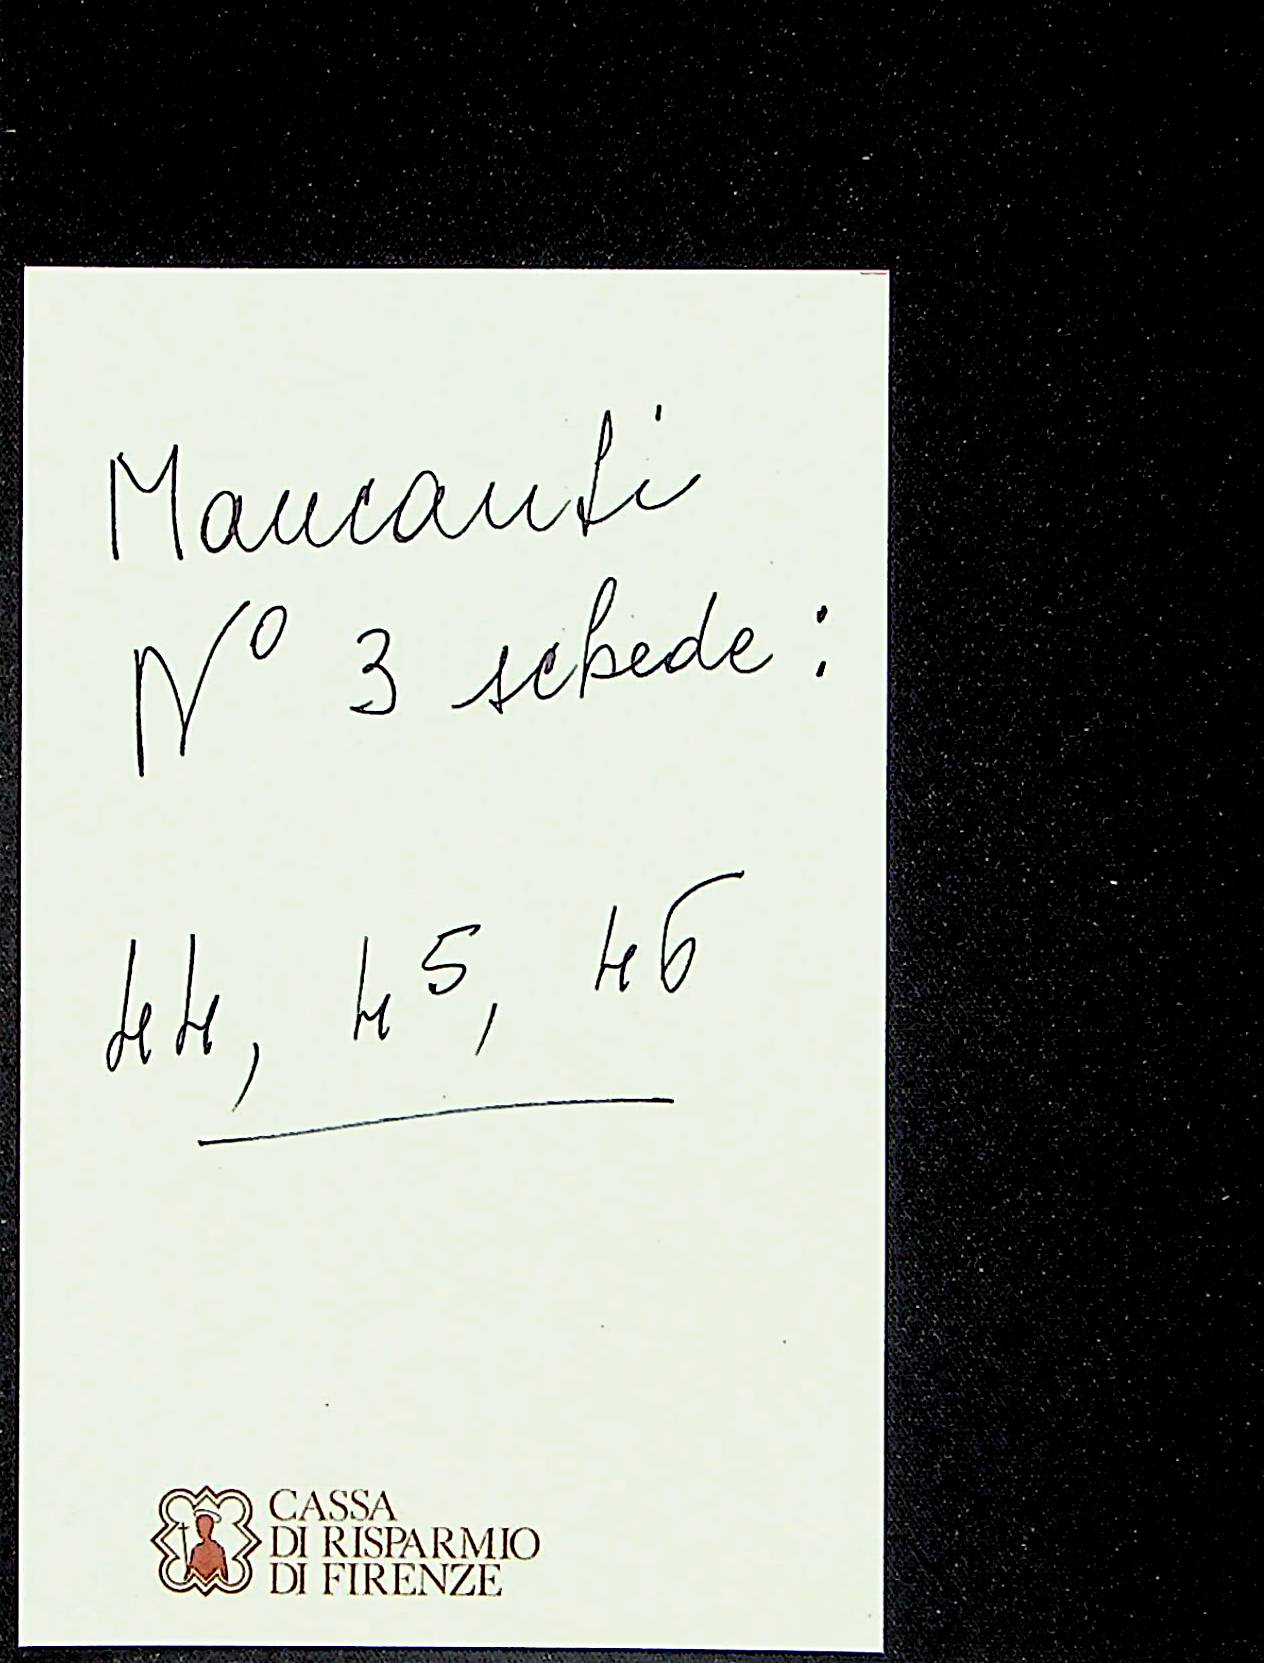 Mancanti
N° 3 schede:
44, 45, 46
CASSA
DI RISPARMIO
DI FIRENZE